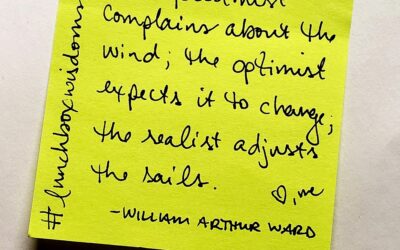 complains about the
wind; the optimist
expects it to change;
the realist adjusts
the sails.
♡, me
-WILLIAM ARTHUR WARD
#lunchboxwisdoms